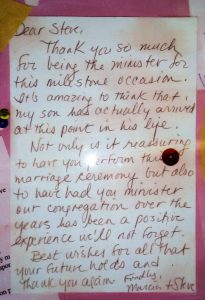 Dear Steve,
Thank you so much
for being the minister for
this milestone occasion.
It's amazing to think that
my son has actually arrived
at this point in his life.
Not only is it reassuring
to have you perform this
marriage ceremony but also
to have had you minister
our congregation over the
years has been a positive
experience we'll not forget.
Best wishes for all that
your future holds and
thank you again. Fondly,
+ Steve